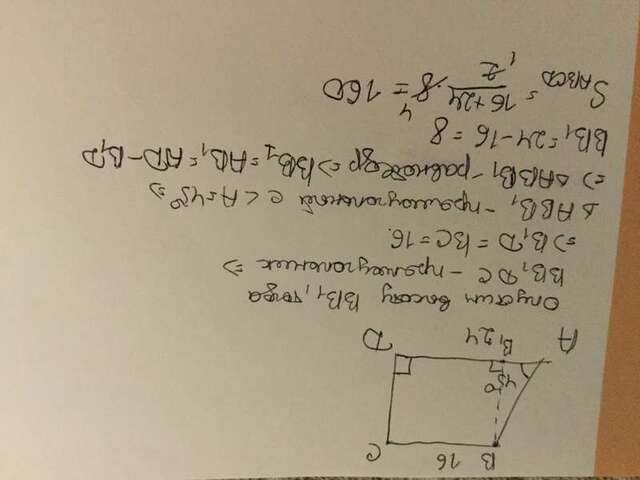 B 16 C
45°
A B₁ 24 D
Опустим высоту BB₁, тогда
BB₁DC - прямоугольник ⇒
⇒ B₁D = BC = 16.
△ ABB₁ - прямоугольный с ∠A = 45° ⇒
⇒ △ABB₁ - равнобедр ⇒ BB₁ = AB₁ = AD - B₁D
BB₁ = 24 - 16 = 8
S_ABCD = (16 + 24)/2 · 8 = 160
4
1